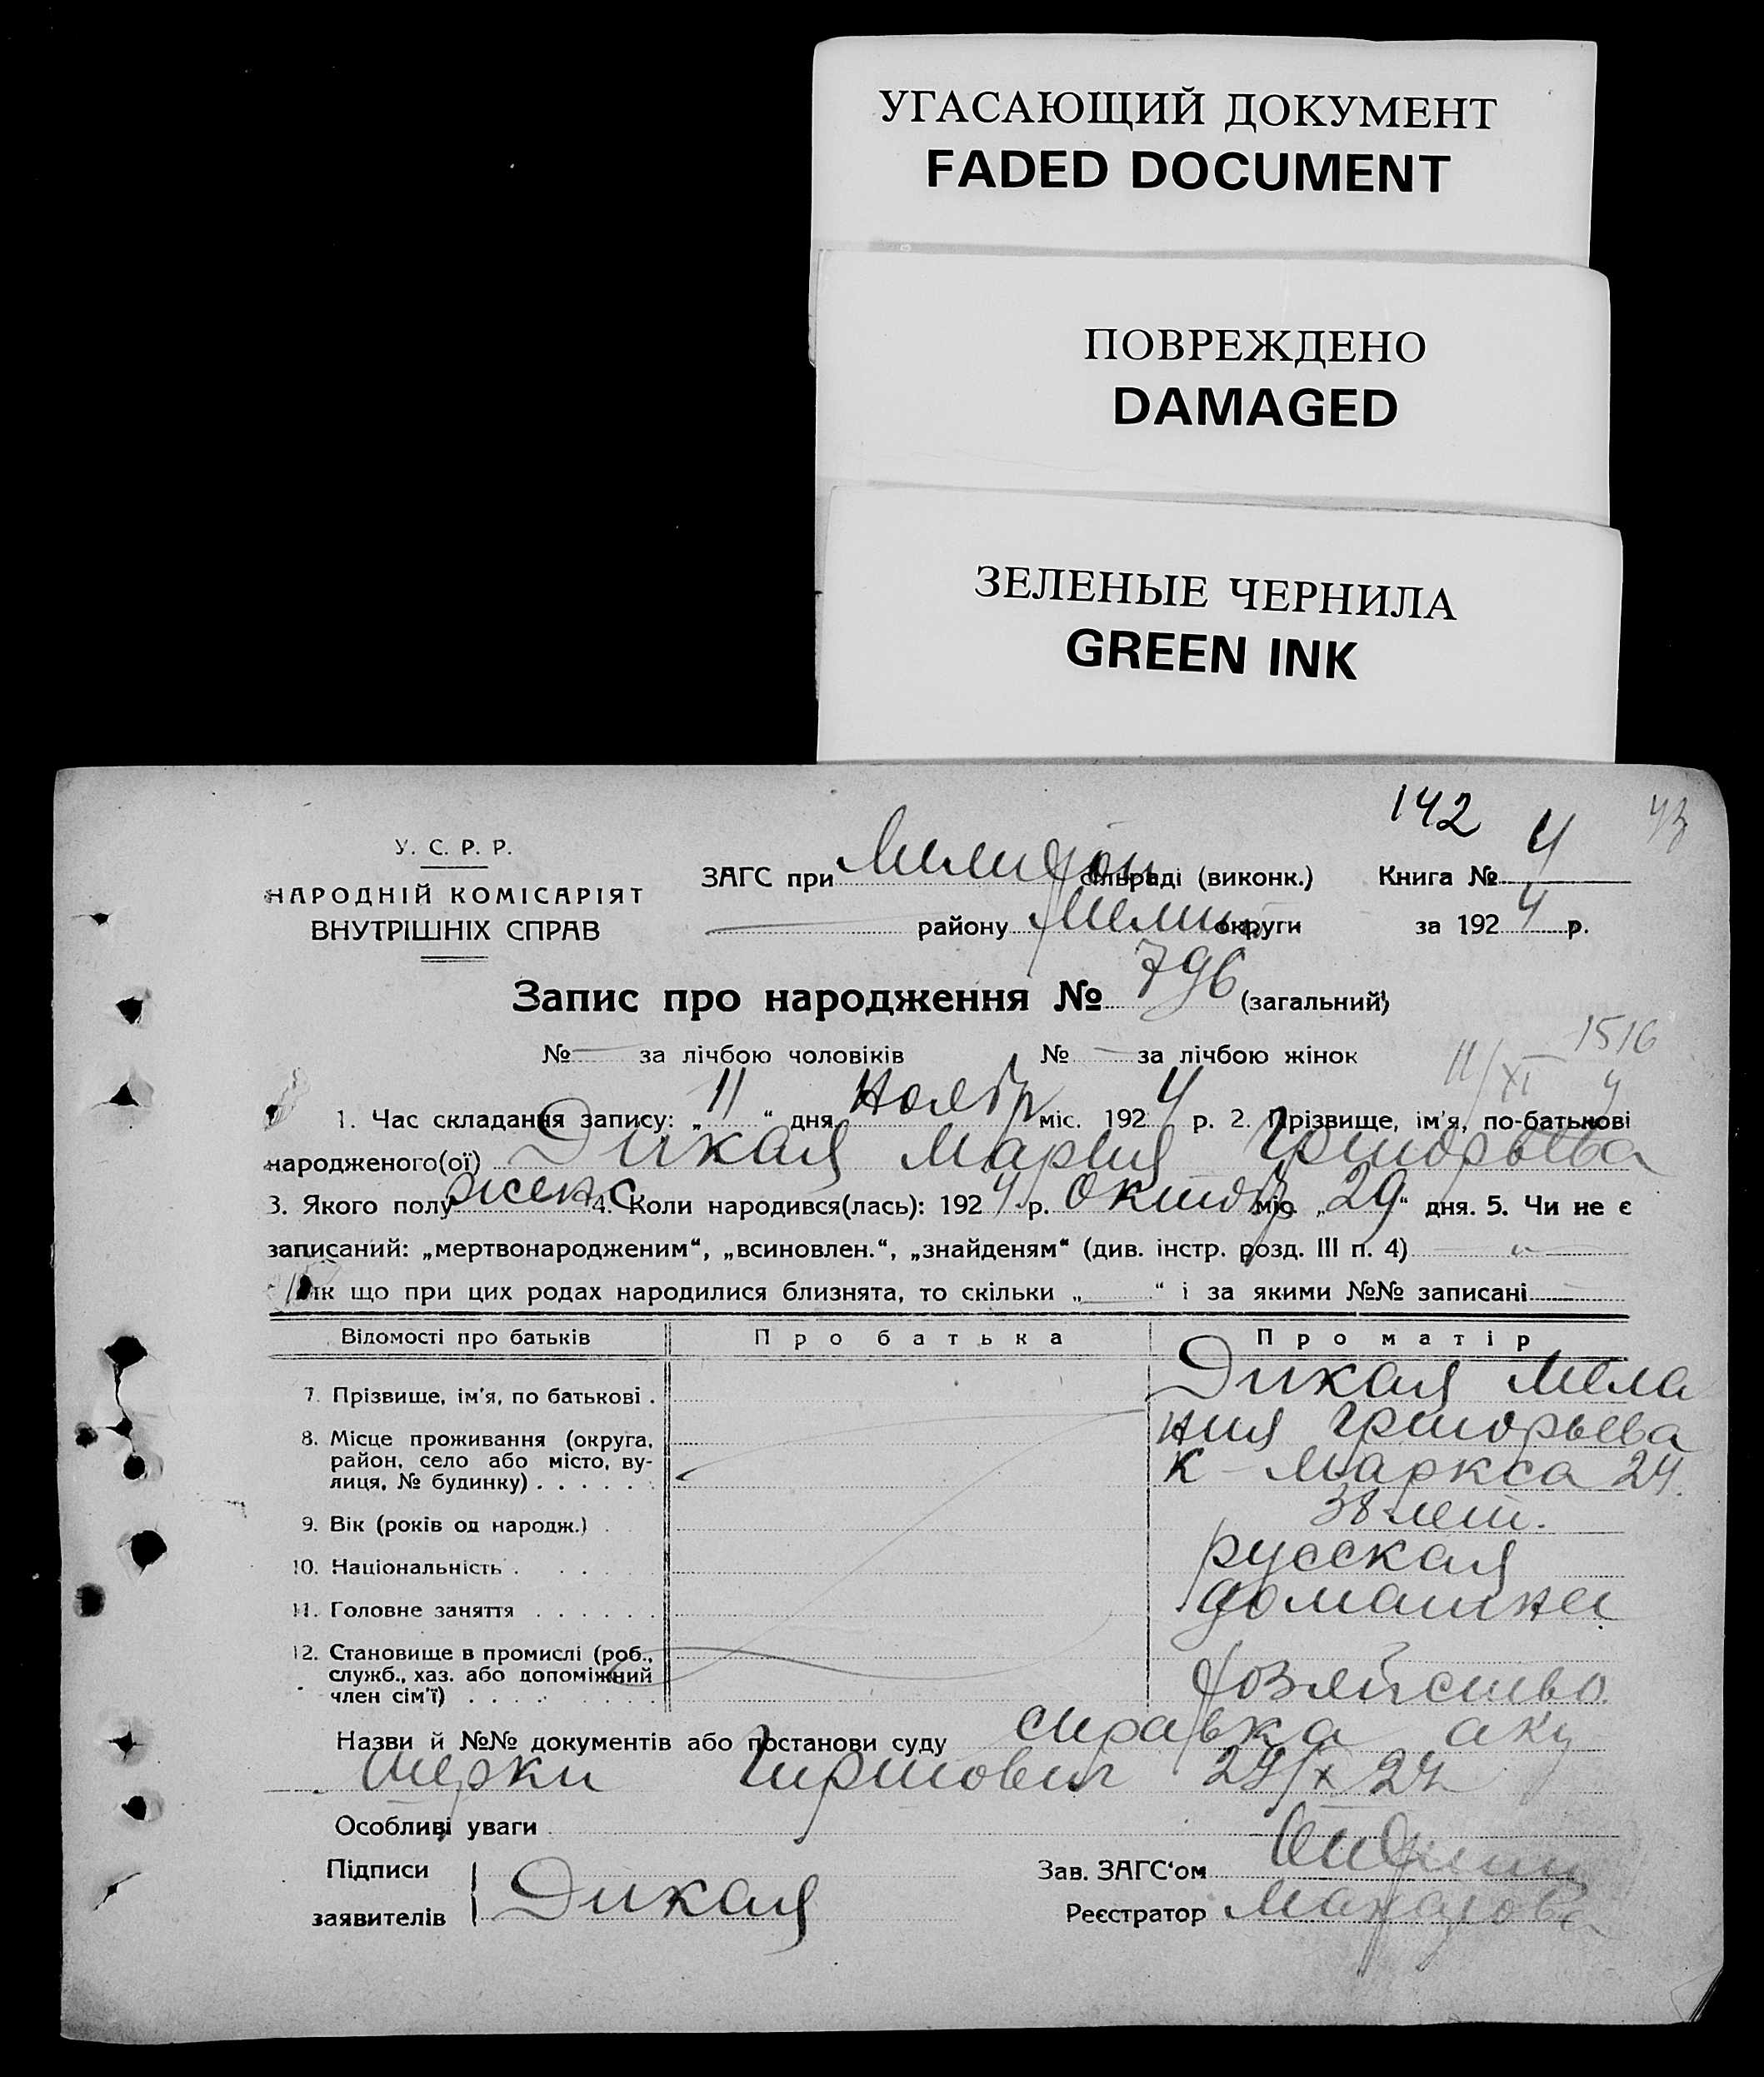 УГАСАЮЩИЙ ДОКУМЕНТ
FADED DOCUMENT
ПОВРЕЖДЕНО
DAMAGED
ЗЕЛЕНЫЕ ЧЕРНИЛА
GREEN INK
142
У. С. Р. Р.
НАРОДНІЙ КОМІСАРІЯТ
ВНУТРІШНІХ СПРАВ
ЗАГС при сільраді (виконк.) Книга № 4
району округи за 1924 р.
Запис про народження № 796 (загальний)
1516
№ — за лічбою чоловіків № — за лічбою жінок 11/XI 4
1. Час складання запису: „11“ дня Ноябр міс. 1924 р. 2. Прізвище, ім'я, по-батькові
народженого(ої) Дикая Мария Григорьева
3. Якого полу женс 4. Коли народився(лась): 1924 р. Октябр міс. „29“ дня. 5. Чи не є
записаний: „мертвонародженим“, „всиновлен.“, „знайденям“ (див. інстр. розд. III п. 4)
як що при цих родах народилися близнята, то скільки „ “ і за якими №№ записані
Відомості про батьків Про батька Про матір
7. Прізвище, ім'я, по батькові . Дикая Мела
ния Григорьева
8. Місце проживання (округа, район, село або місто, ву-
лиця, № будинку) . . . . . . К Маркса 24.
9. Вік (років од народж.) . 38 лет.
10. Національність . . . . . русская
11. Головне заняття . . . . . . домашнее
12. Становище в промислі (роб.,
служб., хаз. або допоміжний
член сім'ї) . . . . . . . . . хозяйство
Назви й №№ документів або постанови суду справка аку
шерки 29/X 24
Особливі уваги
Підписи
заявителів Дикая
Зав. ЗАГС'ом
Реєстратор